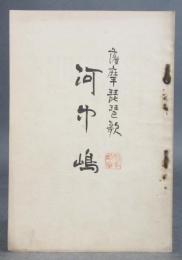 薩摩琵琶歌
河中嶋